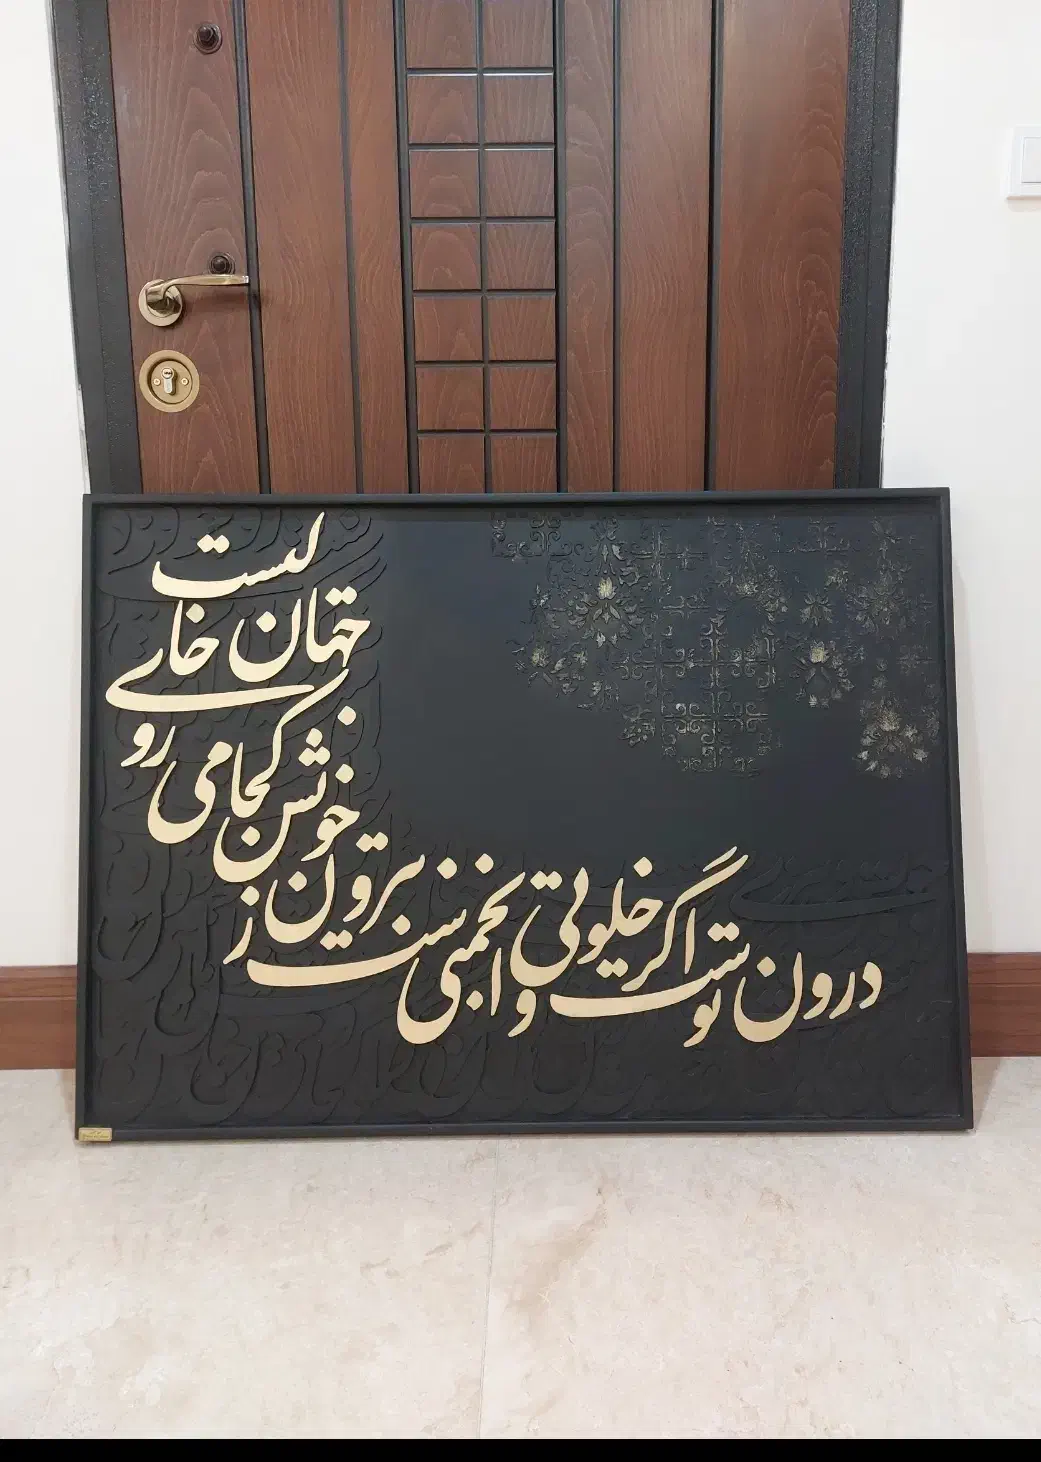 درون توست اگر خلوتی و انجمنی ست
برون ز خویش کجا می روی جهان خالیست